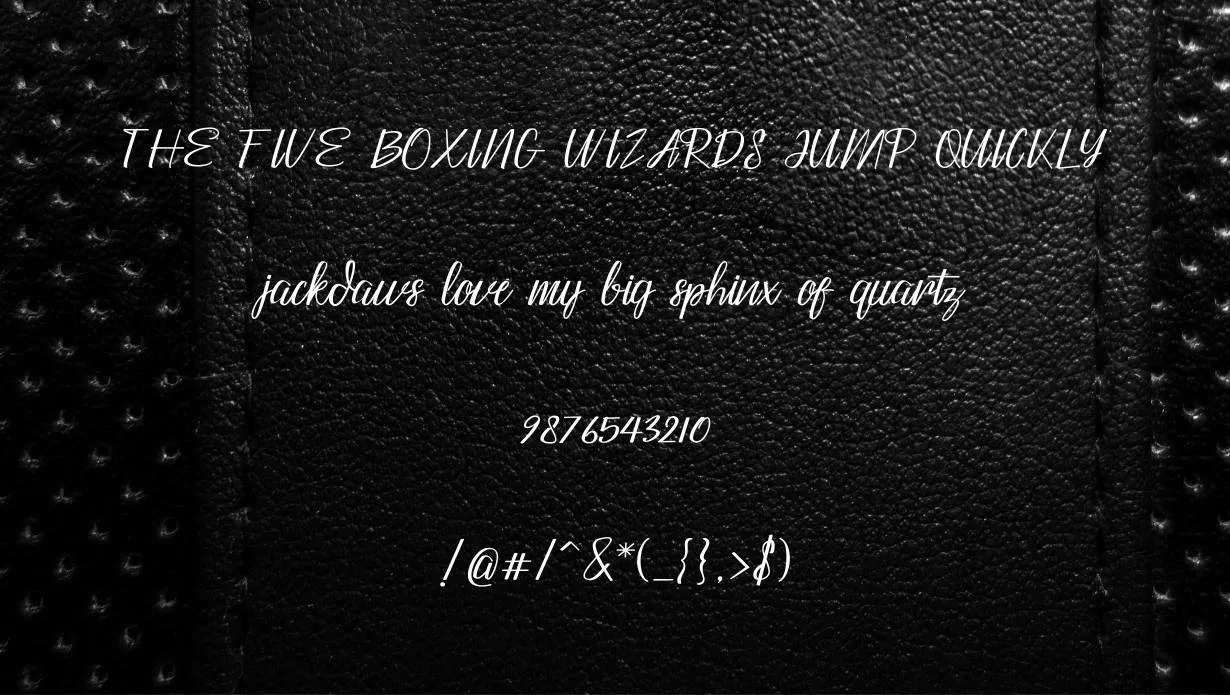 THE FIVE BOXING WIZARDS JUMP QUICKLY
jackdaws love my big sphinx of quartz
9876543210
!@#/^&*(_{}.>$)